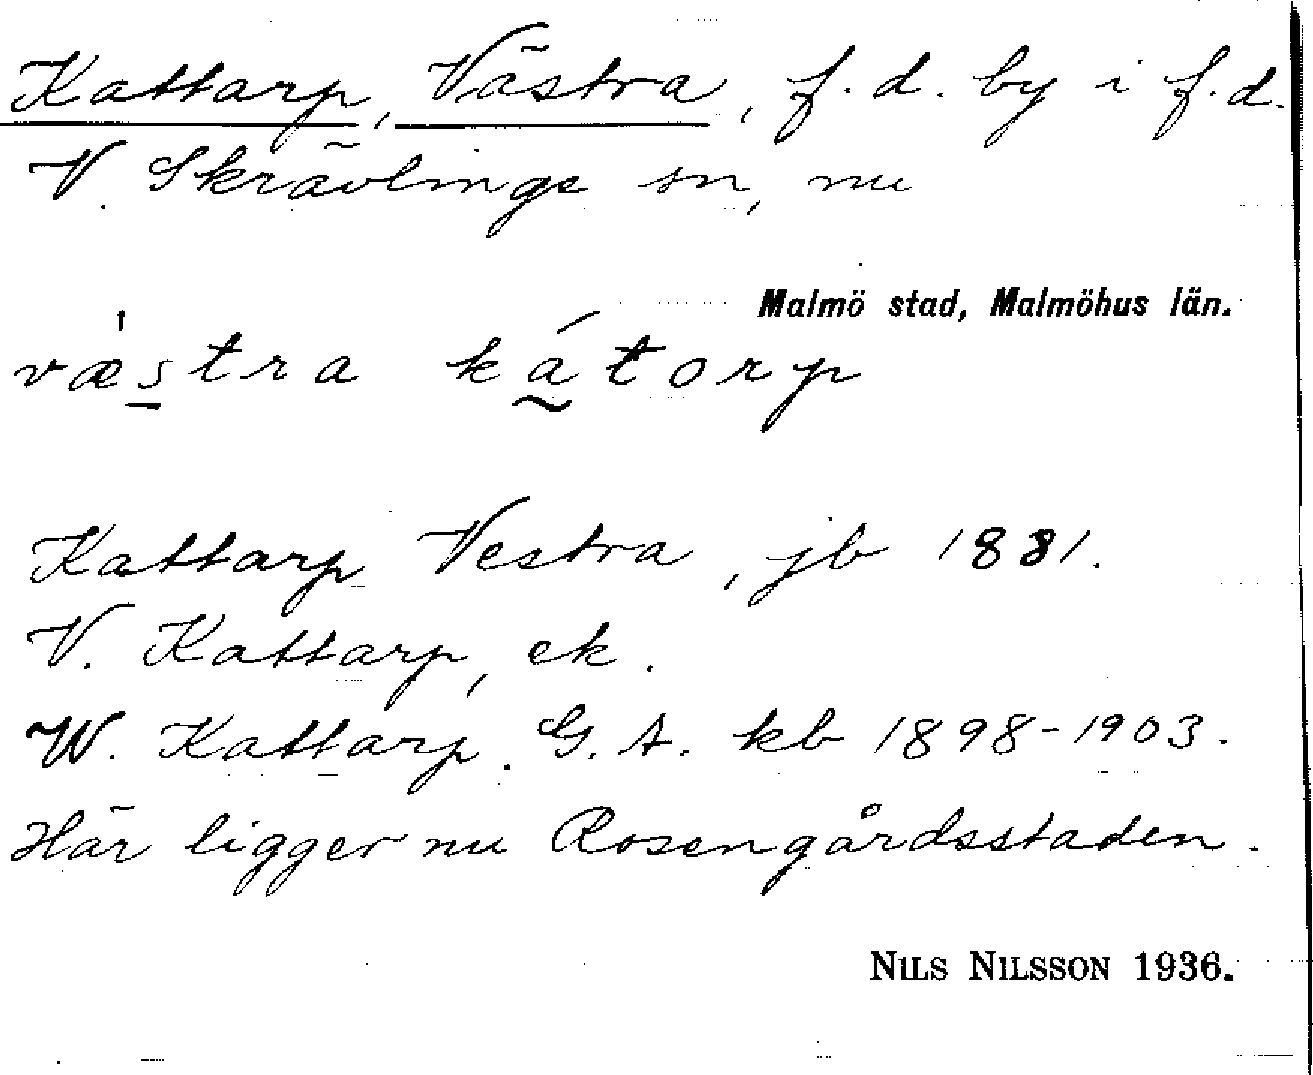 Kattarp, Västra, f.d. by i f.d.
V. Skrävlinge sn, nu
Malmö stad, Malmöhus län.
væstra kátorp
Kattarp Vestra, jb 1881.
V. Kattarp, ek.
W. Kattarp. G. A. kb 1898-1903.
Här ligger nu Rosengårdsstaden.
NILS NILSSON 1936.